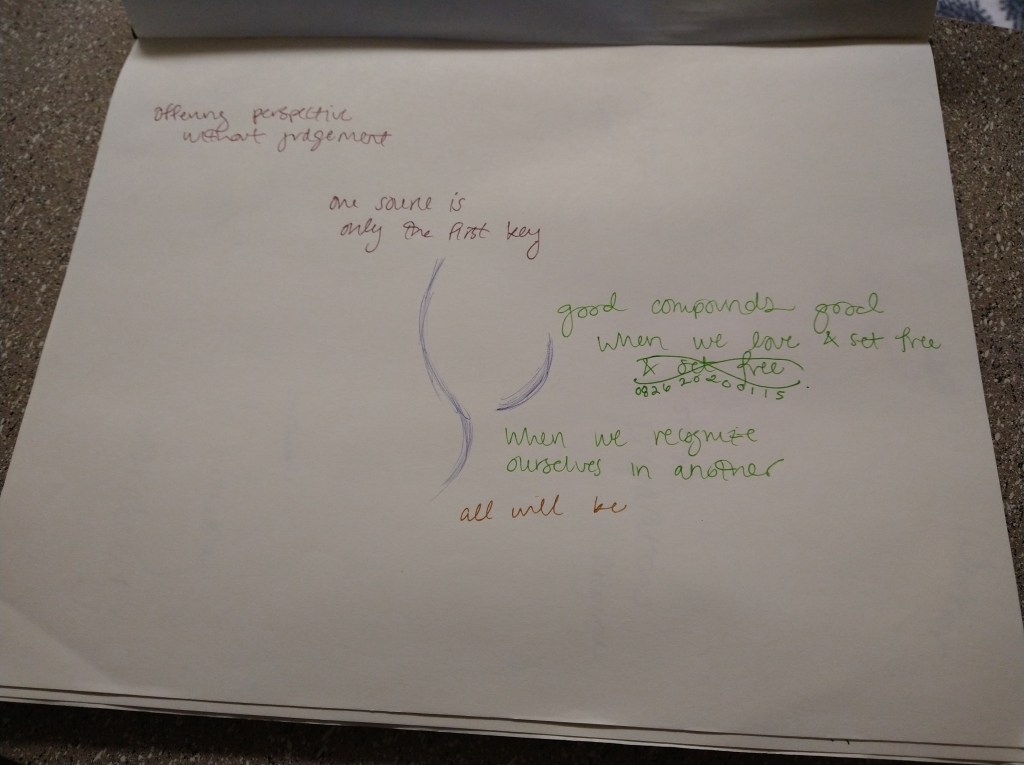 offering perspective
without judgement
one source is
only the first key
good compounds good
when we love & set free
& set free
082620200115.
when we recognize
ourselves in another
all will be